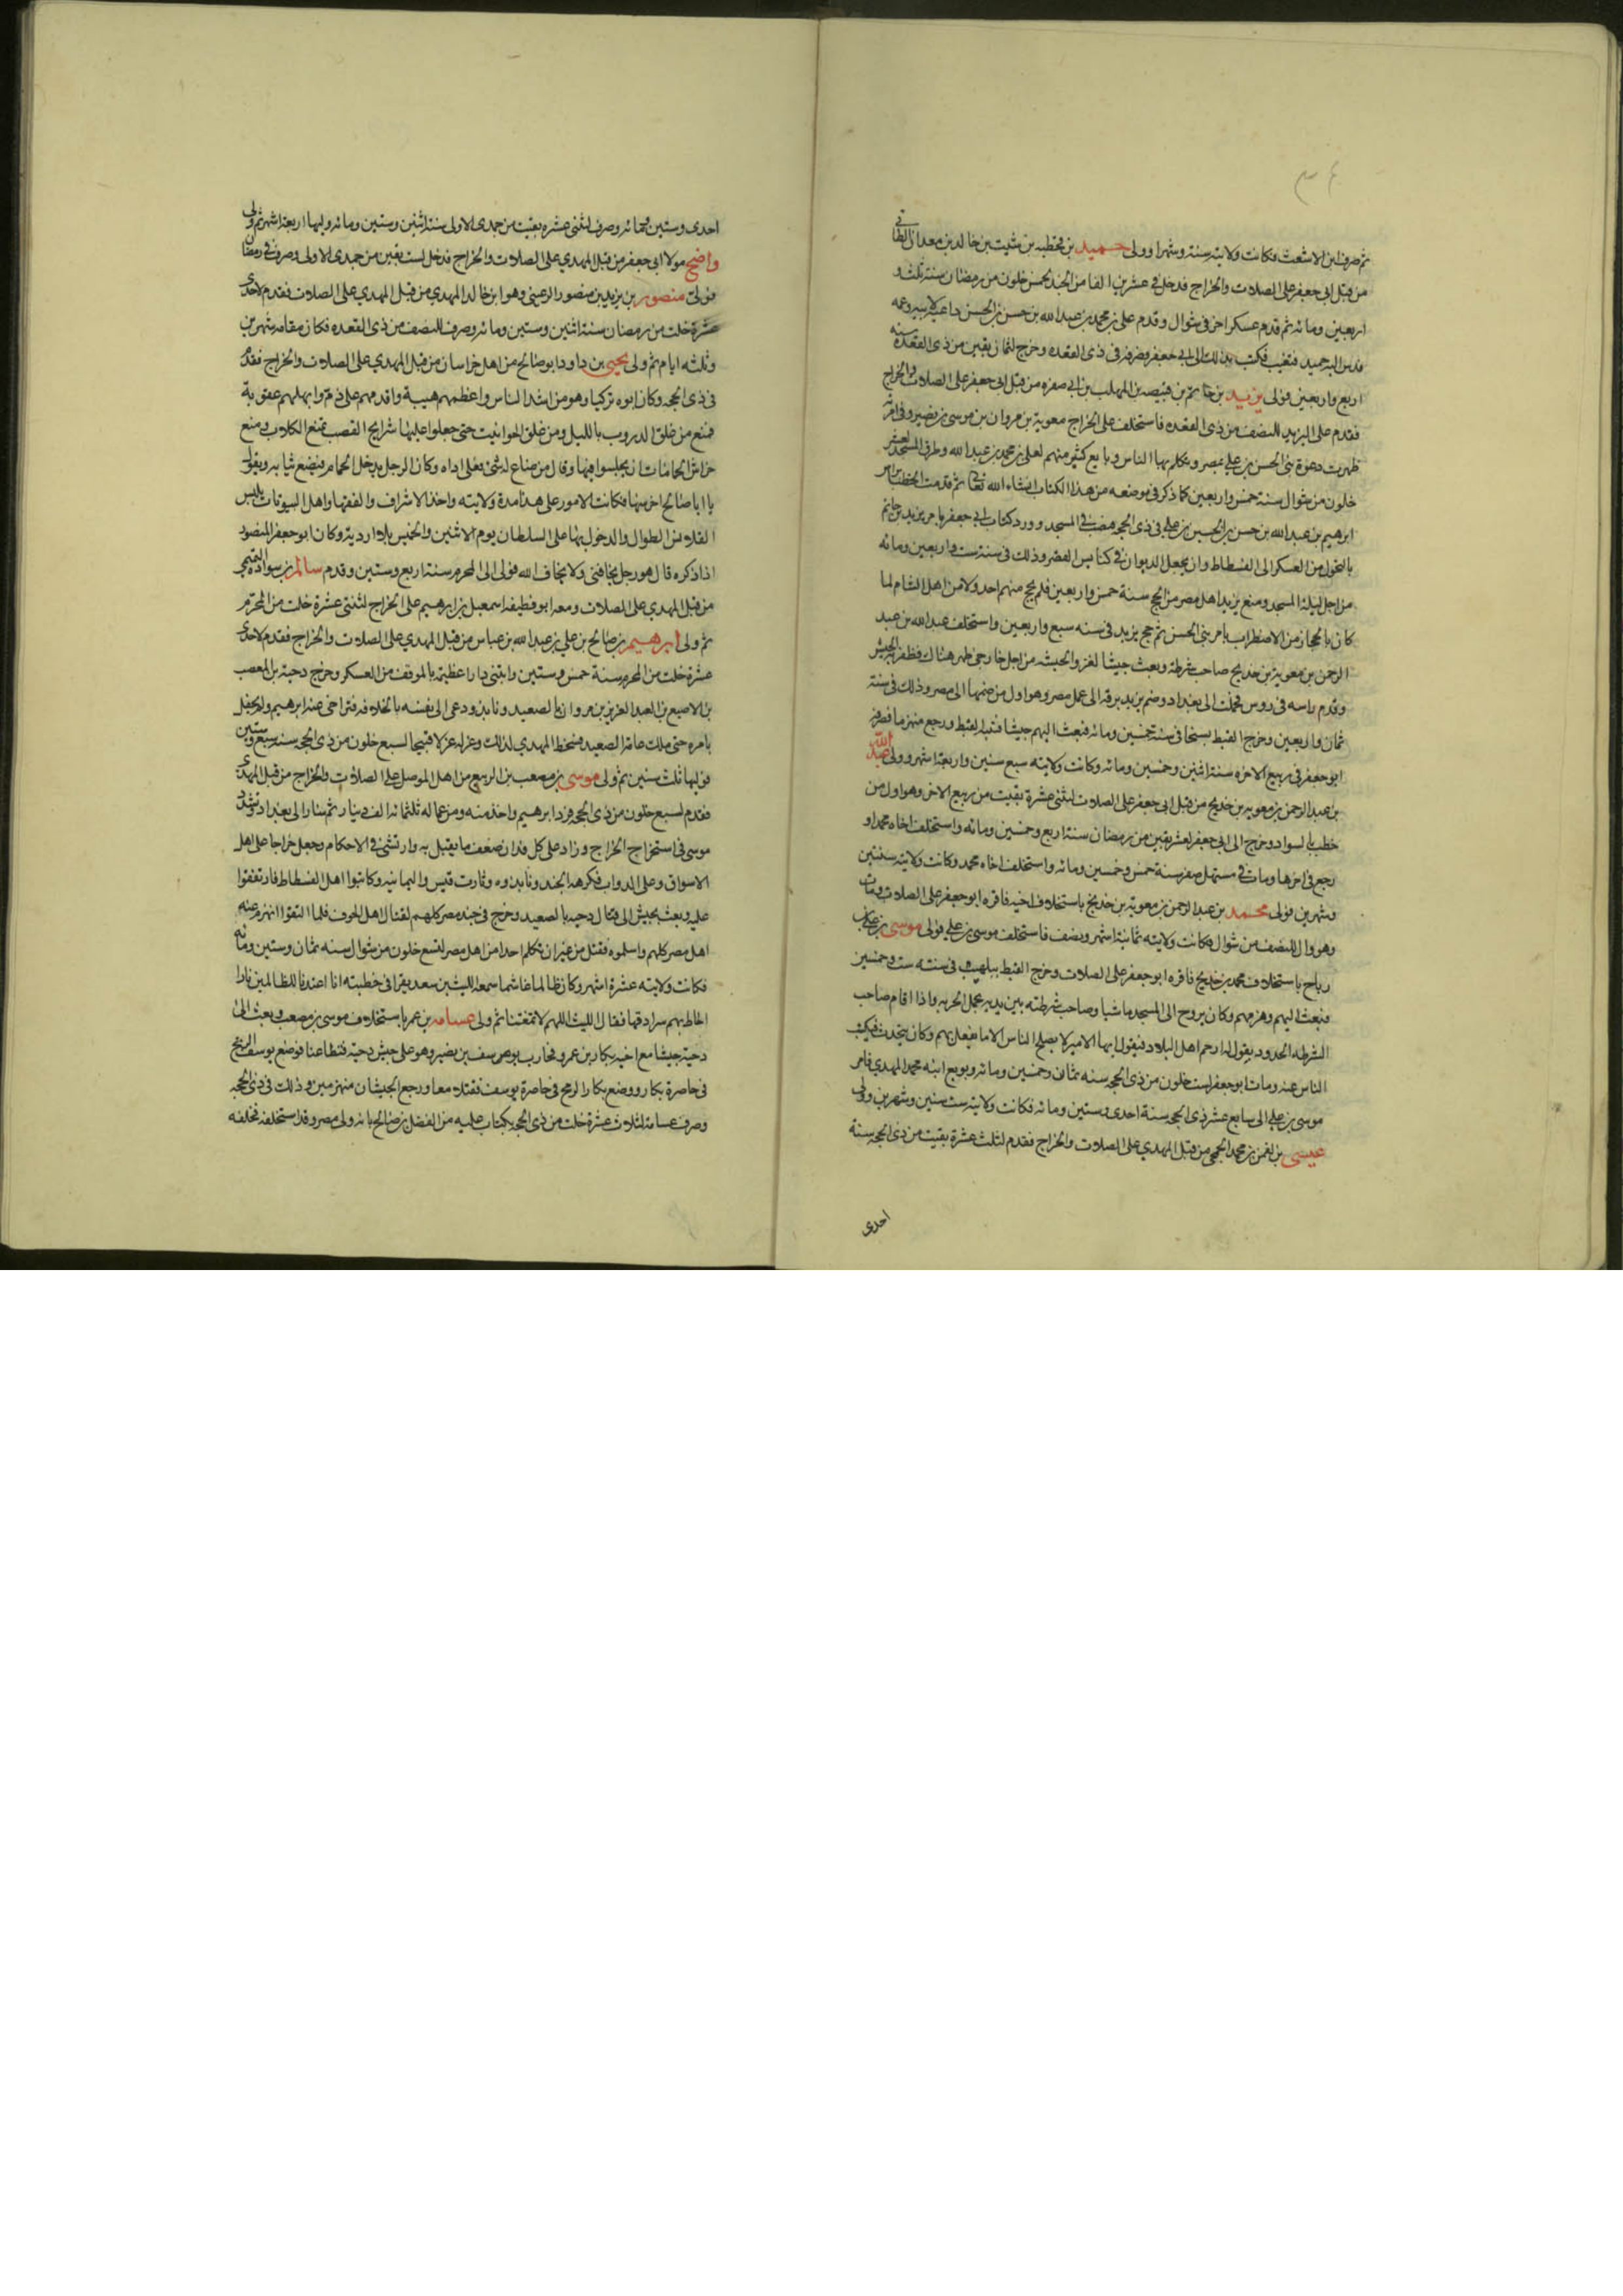 ثم صرف ابن الاشعث فكانت ولايته سنة وشهرا وولى حميد بن قحطبه بن شبيب بن خالد بن معدان الطائى
من قبل ابى جعفر على الصلات والخراج فدخل فى عشرين الفا من الجند لخمس خلون من رمضان سنة ثلث و
اربعين ومائه ثم قدم عسكر اخر فى شوال وقدم على بن محمد بن عبد الله بن حسن بن الحسن داعية لابيه وعمه
فدس اليه حميد فتغيب فكتب بذلك الى ابى جعفر فصرفه فى ذى القعده وخرج لثمان بقين من ذى القعدة سنه
اربع واربعين فولى يزيد بن حاتم بن قبيصه بن المهلب بن ابى صفره من قبل ابى جعفر على الصلات والخراج
فقدم على البريد للنصف من ذى القعده فاستخلف على الخراج معوية بن مروان بن موسى بن نصير وفى امرته
ظهرت دعوة بنى الحسن بن على بمصر وتكلم بها الناس وبايع كثير منهم لعلى بن محمد بن عبد الله وطرق المسجد لعشر
خلون من شوال سنة خمس واربعين كما ذكر فى موضعه من هذا الكتاب انشاء الله تعالى ثم قدمت الخطباء براس
ابرهيم بن عبد الله بن حسن بن الحسين بن على فى ذى الحجه فنصب فى المسجد وورد كتاب ابى جعفر يامر يزيد بن حاتم
بالتحول من العسكر الى الفسطاط وان يجعل الديوان فى كنايس القصر وذلك فى سنة ست واربعين ومائه
من اجل ليلة المسجد ومنع يزيد اهل مصر من الحج سنة خمس واربعين فلم يحج منهم احد ولا من اهل الشام لما
كان بالحجاز من الاضطراب بامر بنى الحسن ثم حج يزيد فى سنه سبع واربعين واستخلف عبد الله بن عبد
الرحمن بن معوية بن خديج صاحب شرطته وبعث جيشا لغزو الحبشه من اجل خارجى ظهر هناك فظفر به الجيش
وقدم راسه فى روس فحملت الى بغداد وضم يزيد برقه الى عمل مصر وهو اول من ضمها الى مصر وذلك فى سنة
ثمان واربعين وخرج القبط بسخا فى سنة خمسين ومائه فبعث اليهم جيشا فتبد القبط ورجع منهزما فصرفه
ابو جعفر فى ربيع الاخره سنة اثنين وخمسين ومائه وكانت ولايته سبع سنين واربعة اشهر وولى عبد الله
بن عبد الرحمن بن معويه بن خديج من قبل ابى جعفر على الصلات لثنتى عشرة بقيت من ربيع الاخر وهو اول من
خطب بالسواد وخرج الى ابى جعفر لعشر بقين من رمضان سنة اربع وخمسين ومائه واستخلف اخاه محمدا و
رجع فى اخرها ومات فى مستهل صفر سنة خمس وخمسين ومائه واستخلف اخاه محمد وكانت ولايته سنتين
وشهرين فولى محمد بن عبد الرحمن بن معوية بن خديج باستخلاف اخيه فاقره ابو جعفر على الصلات ومات
وهو وال للنصف من شوال فكانت ولايته ثمانية اشهر ونصف فاستخلف موسى بن على فولى موسى بن على بن
رباح باستخلاف محمد بن خديج فاقره ابو جعفر على الصلات وخرج القبط ببلهيب فى سنته ست وخمسين
فبعث اليهم وهزمهم وكان يروح الى المسجد ماشيا وصاحب شرطته بين يديه يحمل الحربه واذا اقام صاحب
الشرطه الحدود يقول له ارحم اهل البلاد فيقول ايها الامير لا يصلح الناس الا ما يفعل بهم وكان يتحدث فيكتب
الناس عنه ومات ابو جعفر لست خلون من ذى الحجه سنه ثمان وخمسين ومائه وبويع ابنه محمد المهدى فامر
موسى بن على الى سابع عشر ذى الحجه سنة احدى وستين ومائه فكانت ولايته ست سنين وشهرين وولى
عيسى بن لقمن بن محمد الجمحى من قبل المهدى على الصلات والخراج فقدم لثلث عشرة بقيت من ذى الحجه سنة
احدى
احدى وستين ومائه وصرف لثنتى عشره بقيت من جمدى الاولى سنة اثنين وستين ومائه وليها اربعة اشهر ثم ولى
واضح مولا ابى جعفر من قبل المهدى على الصلات والخراج فدخل لست بقين من جمدى الاولى وصرف فى رمضان
فولى منصور بن يزيد بن منصور الرعينى وهو ابن خال المهدى من قبل المهدى على الصلات فقدم لاحدى
عشرة خلت من رمضان سنة اثنين وستين ومائه وصرف للنصف من ذى القعده فكان مقامه شهرين
وثلثه ايام ثم ولى يحيى بن داود ابو صالح من اهل خراسان من قبل المهدى على الصلات والخراج فقدم
فى ذى الحجه وكان ابوه تركيا وهو من اشد الناس واعظمهم هيبة واقدمهم على دم وابهلهم عقوبة
فمنع من غلق الدروب بالليل ومن غلق الحوانيت حتى جعلوا عليها شرايح القصب تمنع الكلاب ومنع
حراس الحمامات ان يجلسوا فيها وقال من ضاع له شئ فعلى اداه وكان الرجل يدخل الحمام فيضع ثيابه ويقول
يا ابا صالح احرسها فكانت الامور على هذا مدة ولايته واخذ الاشراف والفقها واهل البيوتات بلبس
القلانس الطوال والدخول بها على السلطان يوم الاثنين والخميس بلا ارديه وكان ابو جعفر المنصور
اذا ذكره قال هو رجل يخافنى ولا يخاف الله فولى الى المحرم سنة اربع وستين وقدم سالم بن سواده التميمى
من قبل المهدى على الصلات ومعه ابو قطيفه اسمعيل بن ابرهيم على الخراج لثنتى عشرة خلت من المحرم
ثم ولى ابرهيم بن صالح بن على بن عبد الله بن عباس من قبل المهدى على الصلات والخراج فقدم لاحدى
عشرة خلت من المحرم سنة خمس وستين وابتنى دارا عظيمة بالموقف من العسكر وخرج دحية بن المعصب
بن الاصبع بن العبد العزيز بن مروان بالصعيد ونابذ ودعى الى نفسه بالخلافه فتراخى عنه ابرهيم ولم يحفل
بامره حتى ملك عامة الصعيد فسخط المهدى لذلك وعزله عزلا قبيحا لسبع خلون من ذى الحجه سنه سبع وستين
فوليها ثلث سنين ثم ولى موسى بن مصعب بن الربيع من اهل الموصل على الصلات والخراج من قبل المهدى
فقدم لسبع خلون من ذى الحجه فرد ابرهيم واخذ منه ومن عماله ثلثمائه الف دينار ثم سار الى بغداد وتشدد
موسى فى استخراج الخراج وزاد على كل فدان ضعف ما يقبل به وارتشى فى الاحكام وجعل خراجا على اهل
الاسواق وعلى الدواب فكرهه الجند ونابذوه وثارت قيس واليمانيه وكاتبوا اهل الفسطاط فارتفقوا
عليه وبعث بجيش الى قتال دحيه بالصعيد وخرج فى جند مصر كلهم لقتال اهل الحوف فلما التقوا انهزم عنه
اهل مصر كلهم واسلموه فقتل من غير ان يتكلم احد من اهل مصر لتسع خلون من شوال سنه ثمان وستين ومائه
فكانت ولايته عشرة اشهر وكان ظالما غاشما سمعه الليث بن سعد يقرا فى خطبته انا اعتدنا للظالمين نارا
احاط بهم سرادقها فقال الليث اللهم لا تمقتنا ثم ولى عسامه بن عمر باستخلاف موسى بن مصعب وبعث الى
دحية جيشا مع اخيه بكار بن عمرو فحارب يوسف بن نصير وهو على جيش دحية فتطاعنا فوضع يوسف الرمح
فى خاصرة بكار ووضع بكار الرمح فى خاصرة يوسف فقتلا معا ورجع الجيشان منهزمين وذلك فى ذى الحجه
وصرف عسامه لثلاث عشرة خلت من ذى الحجه بكتاب عليه من الفضل بن صالح بانه ولى مصر وقد استخلفه فخلفه